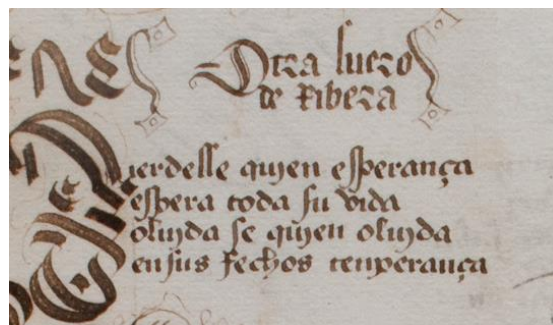 Otra suero
de Ribera
Pierdesse quien esperança
espera toda su vida
oluyda se quien oluyda
en sus fechos tenperança